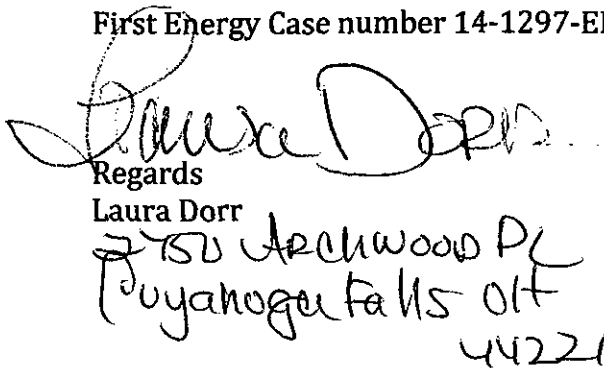 First Energy Case number 14-1297-El
Laura Dorr
Regards
Laura Dorr
2750 Archwood PL
Cuyahoga Falls OH
44221